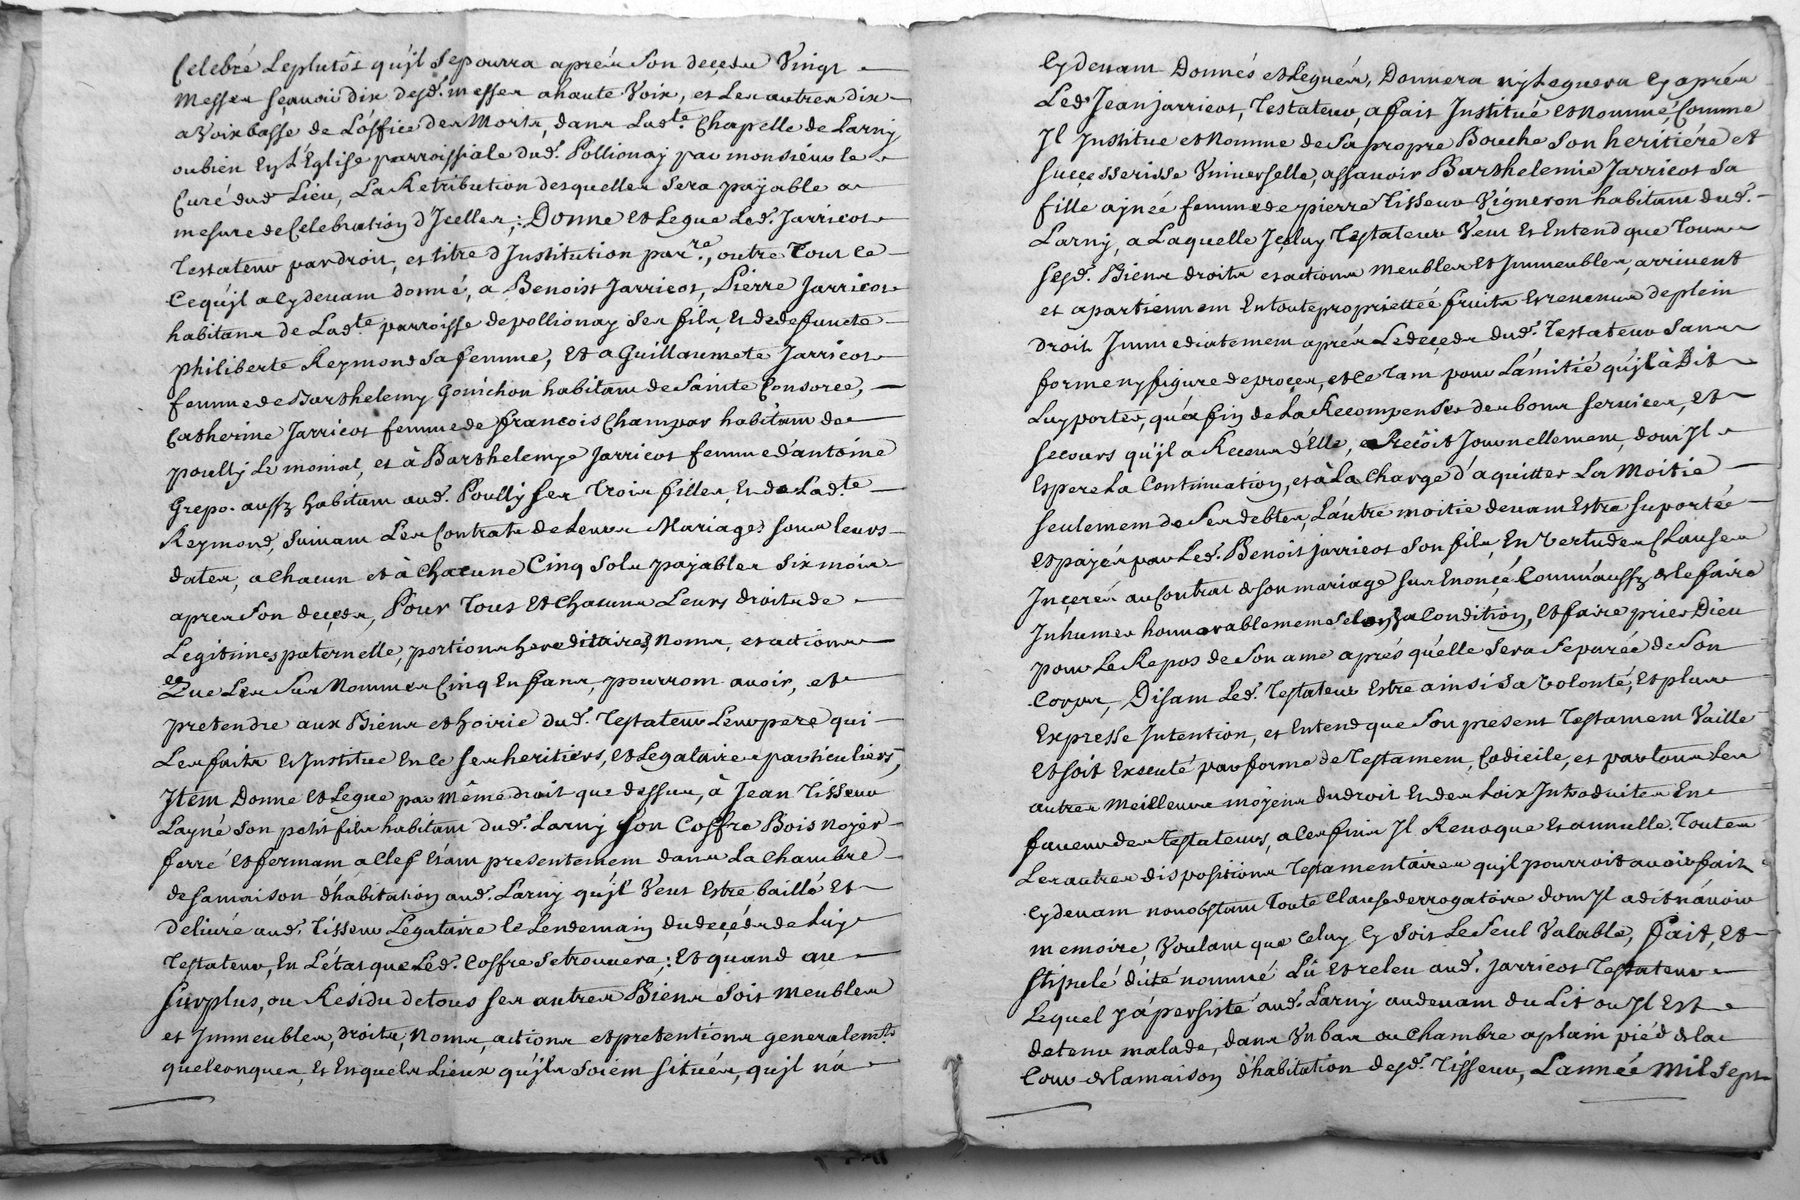 Celebré Leplutôt qu'jl sepourra aprés son deceds Vingt
Messes sçavoir dix desd. messes a haute Voix, et Les autres dix
a Voix basse de L'office des Morts, dans Lad.te Chapelle de Larny
oubien En L'Eglise parroissiale dud. Pollionay par monsieur le
Curé dud. Lieu, La Retribution desquelles sera payable a
mesure de Celebration d'Jcelles; Donne et Legue Led. Jarricot
Testateur pardroit, et titre d'Institution par.re, outre Tout Ce
Cequ'jl a Cydevant donné, a Benoist Jarricot, Pierre Jarricot
habitans de Lad.te parroisse depollionay ses fils, Et de defuncte
philiberte Reymond sa femme, Et a Guillaumete Jarricot
femme de Barthelemy Gonichon habitant de Sainte Consorce,
Catherine Jarricot femme de françois Champar habitant de
poüilly Le monial, et à Barthelemye Jarricot femme d'antoine
Grepo aussy habitant aud. Poully ses Trois filles Et de Lad.te
Reymond, suivant Les Contrats de Leurs Mariages sous leurs
dates, a Chacun et à Chacune Cinq Sols payables six mois
apres son deceds, Pour Tous Et Chacuns Leurs droits de
Legitimes paternelle, portions hereditaires, Noms, et actions
Que Les Sus Nommes Cinq Enfans, pourront avoir, et
pretendre aux Biens et hoirie dud. Testateur Leurpere qui
Les fait Et Institue En Ce ses heritiers, Et Legataires particuliers,
Jtem Donne Et Legue par Même droit que dessus, à Jean Tisseur
Layné son petit fils habitant dud. Larny son Coffre Bois noyer
ferré Et fermant a Clef Etant presentement dans La Chambre
de sa maison d'habitation aud. Larny qu'jl Veut Estre baillé Et
Delivré aud. Tisseur Legataire le Lendemain dudeceds de Luy
Testateur, En L'état que Led. Coffre setrouvera; Et quand au
surplus, ou Residu detous ses autres Biens soit Meubles
et Jmmeubles, droits, Noms, actions et pretentions generalem.ts
quelconques, Et En quels Lieux qu'jls soient situés, qu'jl n'a
Cydevant Donnés et Legués, Donnera ny Leguera Cy aprés
Led. Jean jarricot, Testateur, a fait Institué Et Nommé Comme
Jl Institue et Nomme de sa propre Bouche son heritiére et
successerisse Universelle, assavoir Barthelemie Jarricot sa
fille ajnée femme de pierre Tisseur Vigneron habitant dud.
Larny, a Laquelle Jceluy Testateur Veut Et Entend que Tous
sesd. Biens droits et actions Meubles Et Jmmeubles, arrivent
et apartiennent En toute proprietteé fruits Et revenus de plein
droit Jmmediatement aprés Le deceds dud. Testateur Sans
forme ny figure de proces, et Ce Tant pour L'amitié qu'jl à Dit
Luy porter, qu'a fin de La Recompenser des bons services, Et
secours qu'jl a Receus d'Elle, Reçoit Journellement, dont Jl
Espere La Continuation, et à La Charge d'aquitter La Moitié
seulement de Ses debtes L'autre moitié devant Estre suportée
Et payée par Led. Benoit jarricot son fils, En Vertu des Clauses
Jncerés au Contrat de son mariage sus Enoncé, Comm'aussy de le faire
Jnhumer honnorablement selon sa Condition, Et faire prier Dieu
pour Le Repos de son ame aprés qu'elle sera separée de son
Corps, Disant Led. Testateur Estre ainsi sa Volonté, Et plus
Expresse Jntention, et Entend que son present Testament Vaille
Et soit Executé par forme de Testament, Codicile, et par tous Les
autres Meilleurs moyens dudroit Et des Loix Jntroduites En
faveur des testateurs, a Ces fins Jl Revoque Et annulle. Toutes
Les autres dispositions Testamentaires qu'jl pourroit avoir fait
Cydevant nonobstant Toute Clause derrogatoire dont Jl a dit n'avoir
memoire, Voulant que Celuy Cy soit Le Seul Valable, Fait, Et
stipulé dité nommé Lû Et releu aud. Jarricot Testateur
Lequel y à persisté aud. Larny audevant du Lit ou Jl Est
detenu malade, dans Un bas ou Chambre a plain pied de la
Cour de la maison d'habitation desd. Tisseur, L'année Mil sept